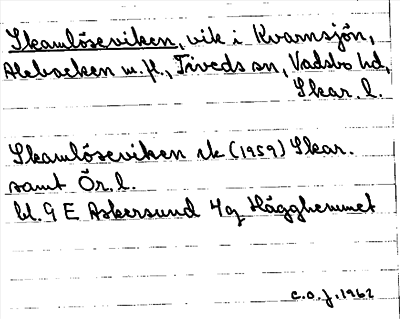 Skamlöseviken, vik i Kvarnsjön,
Alebacken m.fl., Tiveds sn, Vadsbo hd,
Skar. l.
Skamlöseviken rk (1959) Skar.
samt Ör. l.
bl. 9 E Askersund 4g Hägghemmet
C.O.J. 1962